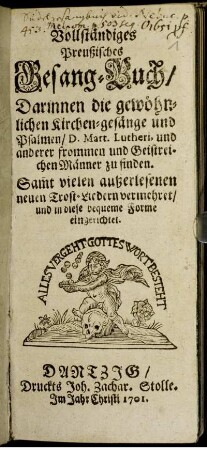 Vollständiges
Preußisches
Gesang-Buch/
Darinnen die gewöhn-
lichen Kirchen-gesänge und
Psalmen/ D. Mart. Lutheri, und
anderer frommen und Geistrei-
chen Männer zu finden.
Samt vielen außerlesenen
neuen Trost-Liedern vermehret/
und in diese bequeme Forme
eingerichtet.
ALLES VERGEHT GOTTES WORT BESTEHT
DANTZIG/
Druckts Joh. Zachar. Stolle.
Im Jahr Christi 1701.